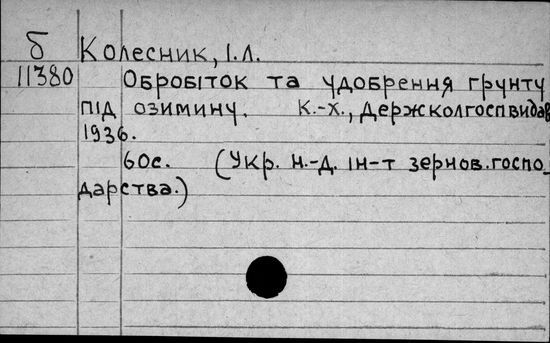 б Колесник, І.Л.
11380 Обробіток та удобрення грунту
під озимину. К.-Х., Держколгоспвидав
1936.
60с. (Укр. н.-д. ін-т зернов.госпо_
дарства.)